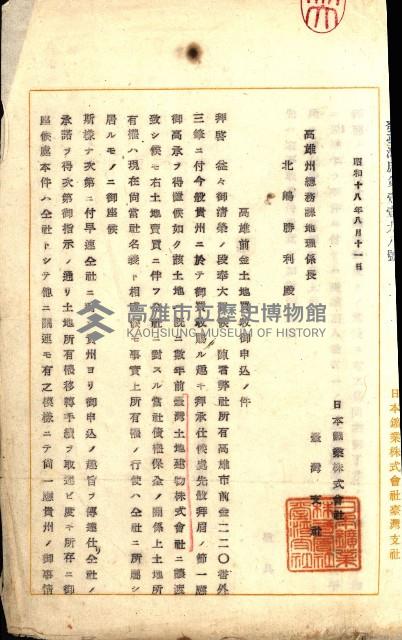 昭和十八年八月十一日
高雄州總務課地理係長
北嶋勝利殿
日本鑛業株式會社
臺灣支社
高雄前金土地買收御申込ノ件
拜啓 益々御清榮ノ段奉大賀候 陳者弊社所有高雄市前金二二〇番外
三筆ニ付今般貴州ニ於テ御買收賜ル趣キ拜承仕候處先般拜眉ノ節一應
御高承ヲ得置候如ク該土地ハ既ニ數年前臺灣土地建物株式會社ニ讓渡
致シ候モ右土地賣買ニ伴フ仝社ニ對スル當社債權保全ノ關係上土地所
有權ハ現在尚當社名義ト相成候モ事實上所有權ノ行使ハ仝社ニ所屬シ
居ルモノニ御座候
斯樣ナ次第ニ付早速仝社ニ貴州ヨリ御申込ノ趣旨ヲ傳達仕仝社ノ
承諾ヲ得次第御指示ノ通リ土地所有權移轉手續ヲ取運ビ度キ所存ニ御
座候處本件ハ仝社トシテ他ニ關連モ有之模樣ニテ尚一應貴州ノ御事情
日本鑛業株式會社臺灣支社
高雄市立歷史博物館
KAOHSIUNG MUSEUM OF HISTORY